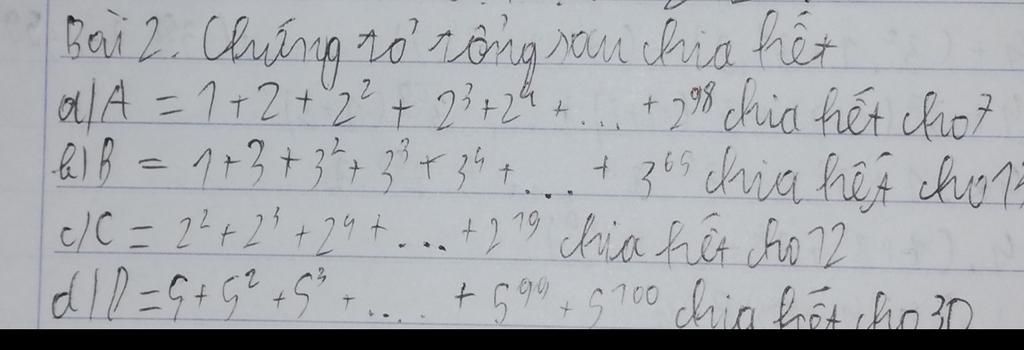 Bài 2. Chứng tỏ tổng sau chia hết
a/A = 1+2+2²+2³+2⁴+...+2⁹⁸ chia hết cho 7
b/B = 1+3+3²+3³+3⁴+...+3⁶⁵ chia hết cho
c/C = 2²+2³+2⁴+...+2¹⁹ chia hết cho 12
d/D = 5+5²+5³+....+5⁹⁹+5¹⁰⁰ chia hết cho 30